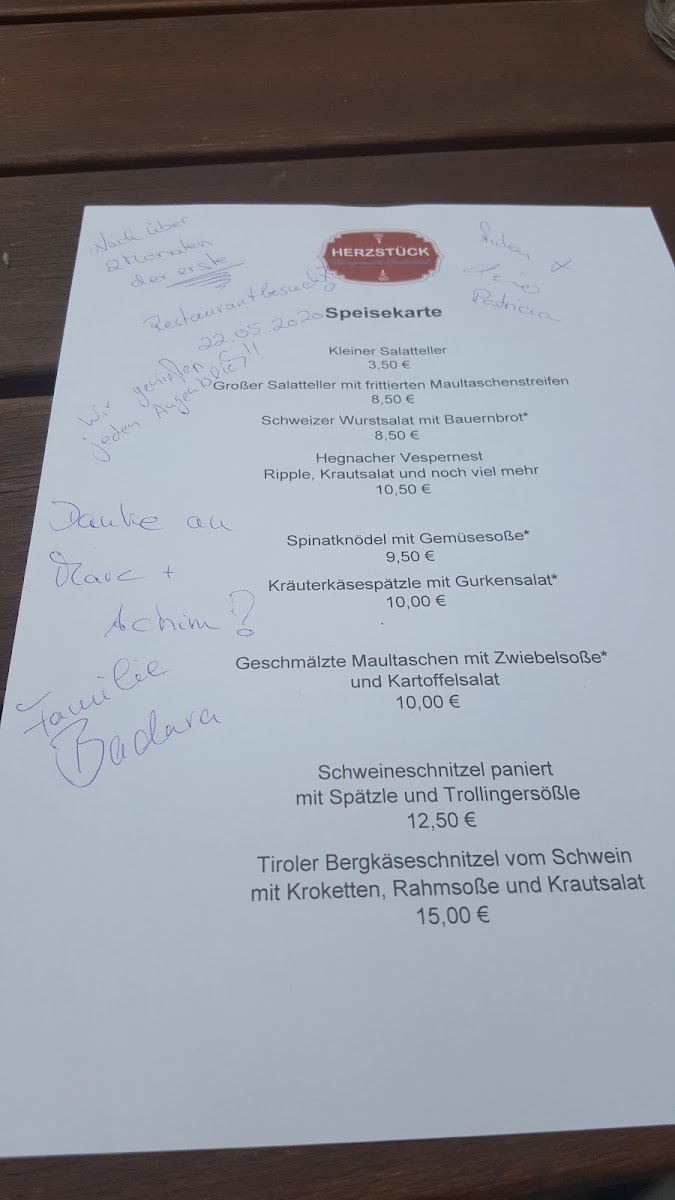 Nach über
2 Monaten
der erste
Restaurantbesuch!
22.05.2020
Wir genießen
jeden Augenblick!!
Danke an
Marc +
Achim!
Familie
Badara
Patricia
HERZSTÜCK
Speisekarte
Kleiner Salatteller
3,50 €
Großer Salatteller mit frittierten Maultaschenstreifen
8,50 €
Schweizer Wurstsalat mit Bauernbrot*
8,50 €
Hegnacher Vespernest
Ripple, Krautsalat und noch viel mehr
10,50 €
Spinatknödel mit Gemüsesoße*
9,50 €
Kräuterkäsespätzle mit Gurkensalat*
10,00 €
Geschmälzte Maultaschen mit Zwiebelsoße*
und Kartoffelsalat
10,00 €
Schweineschnitzel paniert
mit Spätzle und Trollingersößle
12,50 €
Tiroler Bergkäseschnitzel vom Schwein
mit Kroketten, Rahmsoße und Krautsalat
15,00 €